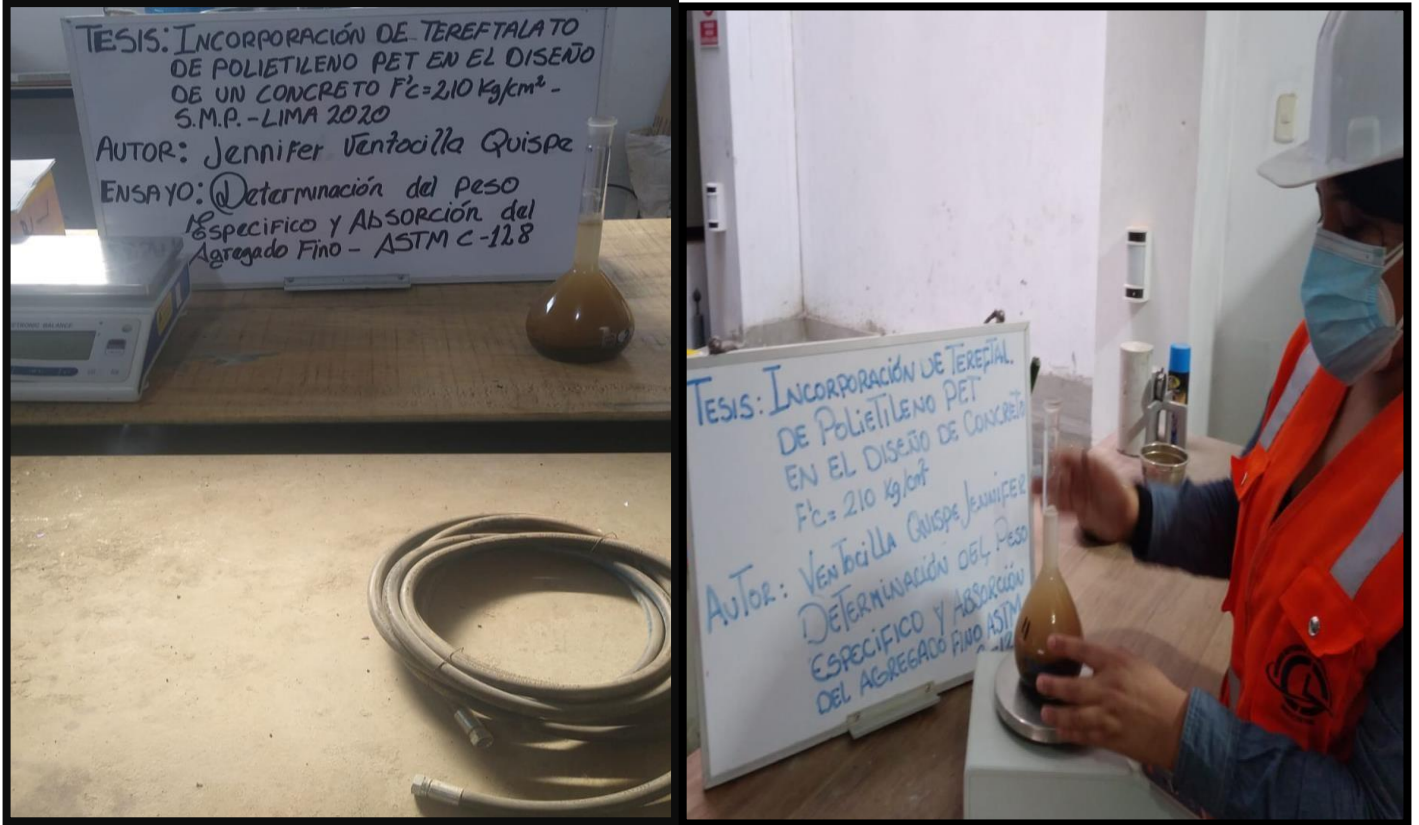 TESIS: INCORPORACIÓN DE TEREFTALATO
DE POLIETILENO PET EN EL DISEÑO
DE UN CONCRETO F'C=210 Kg/cm² -
S.M.P. - LIMA 2020
AUTOR: Jennifer Ventocilla Quispe
ENSAYO: Determinación del Peso
Especifico y Absorción del
Agregado Fino - ASTM C-128
ELECTRONIC BALANCE
TESIS: INCORPORACIÓN DE TEREFTAL.
DE POLIETILENO PET
EN EL DISEÑO DE CONCRETO
F'C= 210 Kg/cm²
AUTOR: VENTOCILLA QUISPE JENNIFER
DETERMINACIÓN DEL PESO
ESPECIFICO Y ABSORCIÓN
DEL AGREGADO FINO ASTM